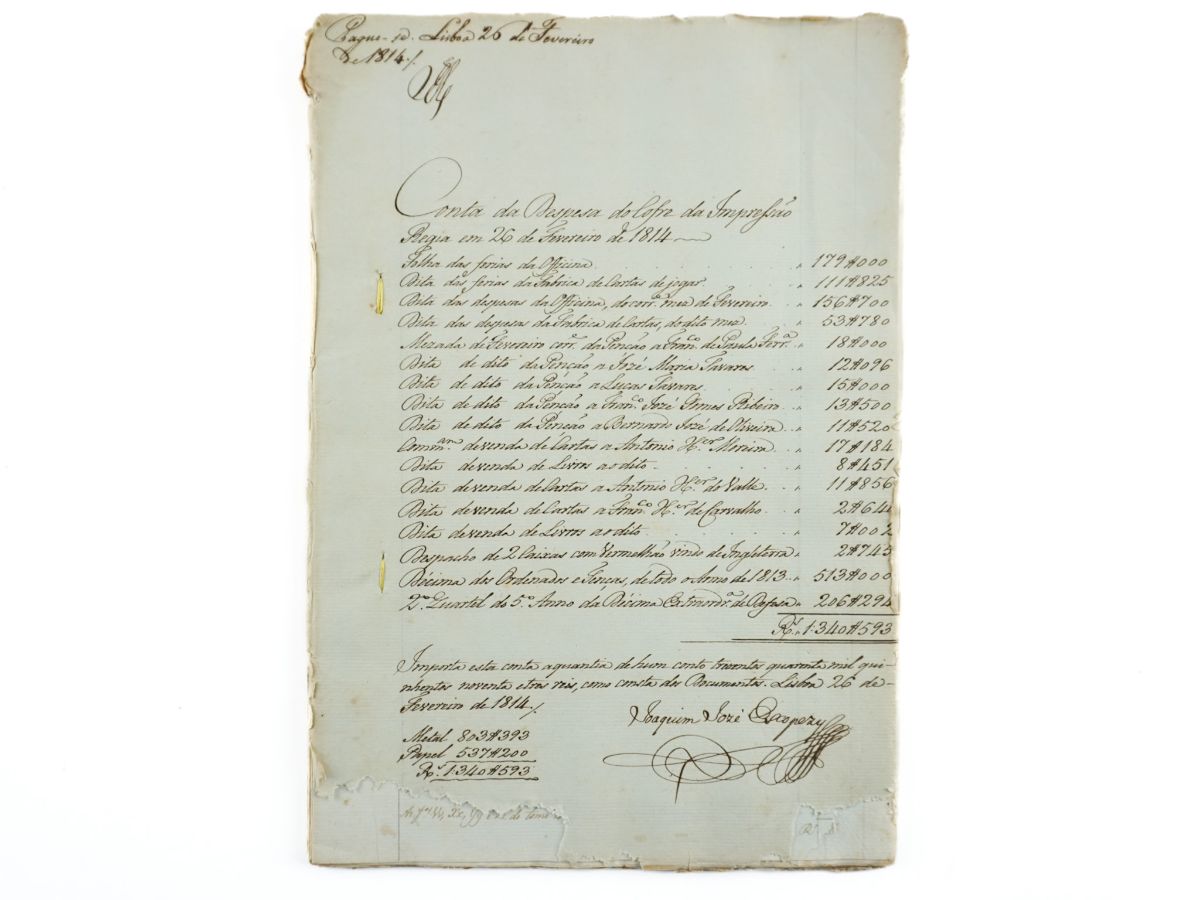 Pague-se. Lisboa 26 de Fevereiro
de 1814./.
Conta da Despesa do Cofre da Impressão
Regia em 26 de Fevereiro de 1814
Folha das ferias da Officina 179$000
Dita das ferias da Fabrica de Cartas de jogar 111$825
Dita das despesas da Officina, do corr.e mez de Fevereiro 156$700
Dita das despesas da Fabrica de Cartas, do dito mez 53$780
Mezada de Fevereiro corr.e da Penção a Fran.co de Paula Ferr.a 18$000
Dita de dito da Penção a José Maria Tavares 12$096
Dita de dito da Penção a Lucas Tavares 15$000
Dita de dito da Penção a Fran.co José Gomes Ribeiro 13$500
Dita de dito da Penção a Bernardo José de Oliveira 11$520
Comm.am de venda de Cartas a Antonio X.er Moreira 17$184
Dita de venda de Livros ao dito 8$451
Dita de venda de Cartas a Antonio X.er do Valle 11$856
Dita de venda de Cartas a Fran.co X.er de Carvalho 2$64
Dita de venda de Livros ao dito 7$002
Despacho de 2 Caixas com Vermelhão vindo de Inglaterra 2$745
Décima dos Ordenados e Tenças, de todo o Anno de 1813 513$000
2.o Quartel do 5.o Anno da Décima Extraordr.a de Defesa 206$294
R.s 1.340$593
Importa esta conta a quantia de hum conto trezentos quarenta mil qui-
nhentos noventa e tres reis, como consta dos Documentos. Lisboa 26 de
Fevereiro de 1814./.
Joaquim José Escopezy
Metal 803$393
Papel 537$200
R.s 1.340$593